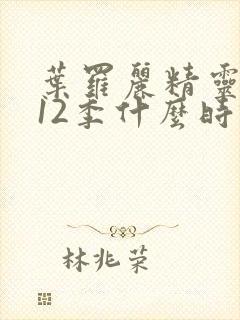 葉羅麗精靈
12季什麼時
林兆荣